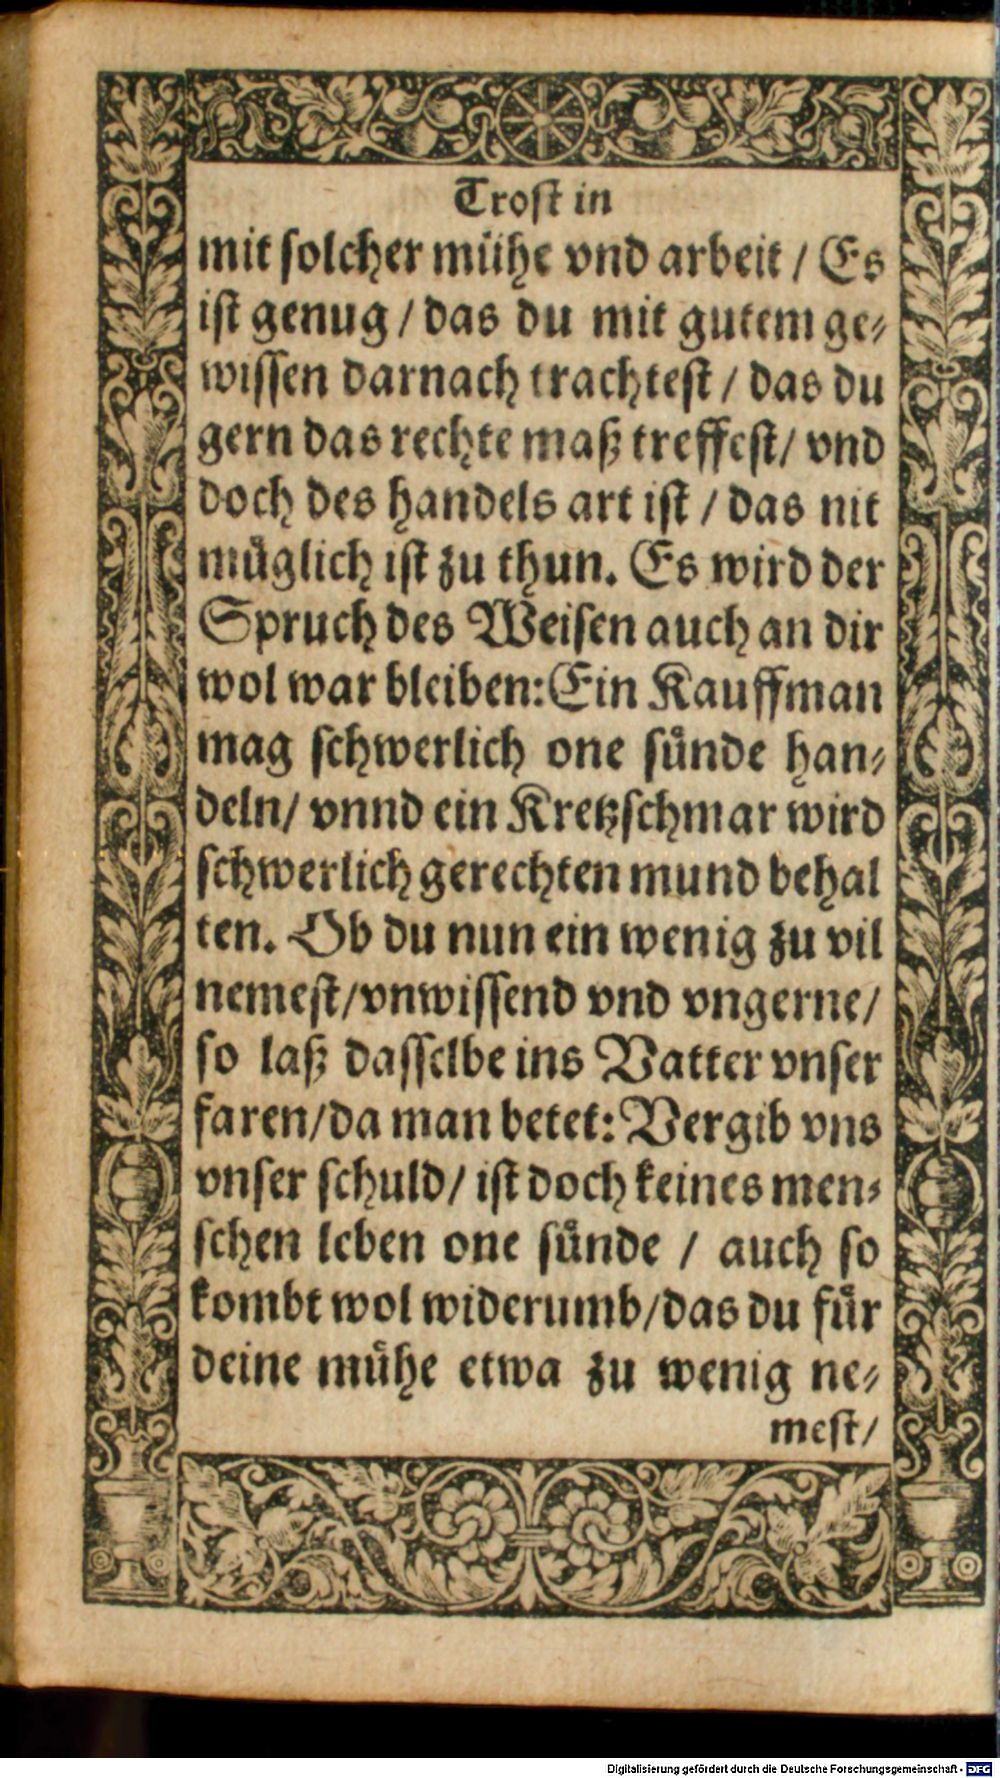 Trost in
mit solcher mühe vnd arbeit / Es
ist genug / das du mit gutem ge⸗
wissen darnach trachtest / das du
gern das rechte maß treffest / vnd
doch des handels art ist / das nit
müglich ist zu thun. Es wird der
Spruch des Weisen auch an dir
wol war bleiben: Ein Kauffman
mag schwerlich one sünde han⸗
deln / vnnd ein Kretzschmar wird
schwerlich gerechten mund behal
ten. Ob du nun ein wenig zu vil
nemest / vnwissend vnd vngerne /
so laß dasselbe ins Vatter vnser
faren / da man betet: Vergib vns
vnser schuld / ist doch keines men⸗
schen leben one sünde / auch so
kombt wol widerumb / das du für
deine mühe etwa zu wenig ne⸗
mest /
Digitalisierung gefördert durch die Deutsche Forschungsgemeinschaft - DFG